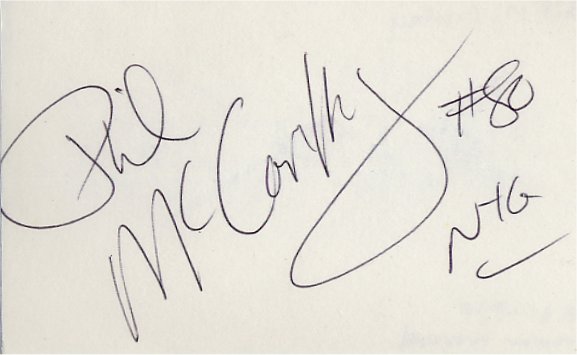 Phil
McCarthy #80
NYG